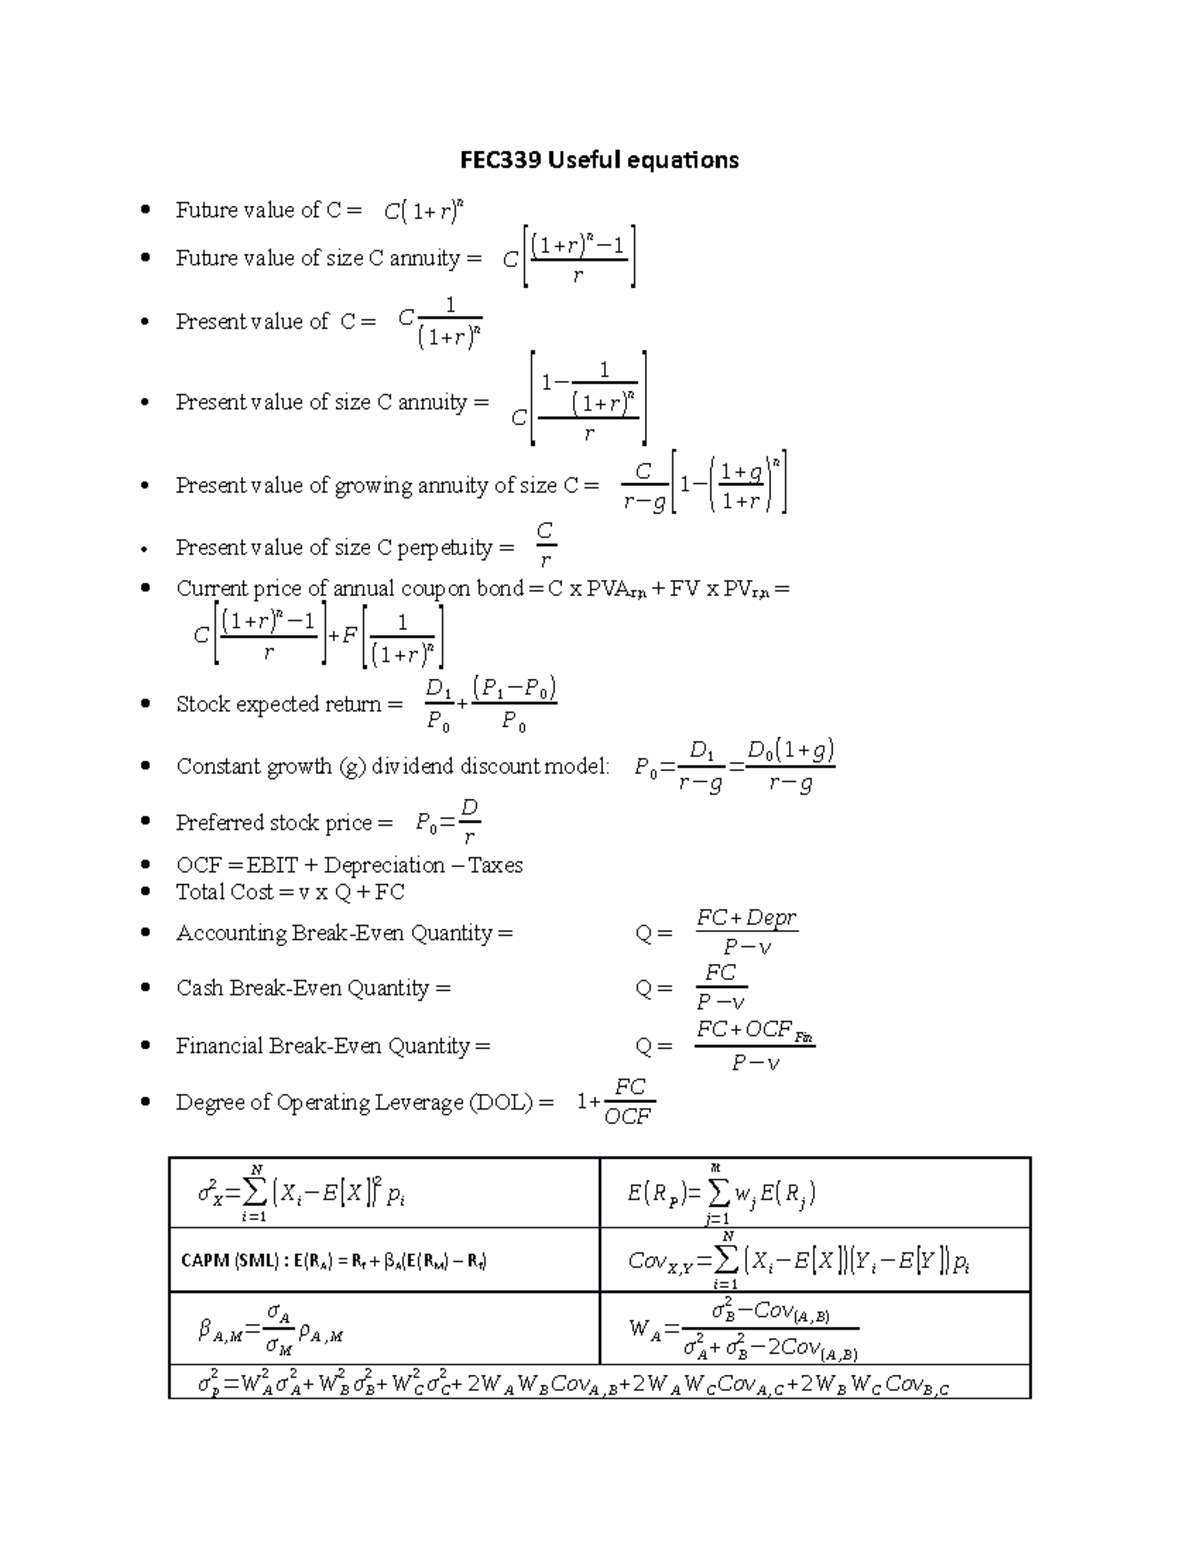 FEC339 Useful equations
• Future value of C = C(1+r)^n
• Future value of size C annuity = C[((1+r)^n−1)/r]
• Present value of C = C 1/(1+r)^n
• Present value of size C annuity = C[(1−1/(1+r)^n)/r]
• Present value of growing annuity of size C = C/(r−g)[1−((1+g)/(1+r))^n]
• Present value of size C perpetuity = C/r
• Current price of annual coupon bond = C x PVA_r,n + FV x PV_r,n =
C[((1+r)^n−1)/r]+F[1/(1+r)^n]
• Stock expected return = D_1/P_0+(P_1−P_0)/P_0
• Constant growth (g) dividend discount model: P_0=D_1/(r−g)=D_0(1+g)/(r−g)
• Preferred stock price = P_0=D/r
• OCF = EBIT + Depreciation – Taxes
• Total Cost = v x Q + FC
• Accounting Break-Even Quantity = Q = (FC+Depr)/(P−v)
• Cash Break-Even Quantity = Q = FC/(P−v)
• Financial Break-Even Quantity = Q = (FC+OCF_Fin)/(P−v)
• Degree of Operating Leverage (DOL) = 1+FC/OCF
σ²_X=∑_{i=1}^{N}(X_i−E[X])² p_i
E(R_P)=∑_{j=1}^{m} w_j E(R_j)
CAPM (SML) : E(R_A) = R_f + β_A(E(R_M) – R_f)
Cov_X,Y=∑_{i=1}^{N}(X_i−E[X])(Y_i−E[Y])p_i
β_A,M=σ_A/σ_M ρ_A,M
W_A=(σ²_B−Cov_(A,B))/(σ²_A+σ²_B−2Cov_(A,B))
σ²_p=W²_Aσ²_A+W²_Bσ²_B+W²_Cσ²_C+2W_A W_B Cov_A,B+2W_A W_C Cov_A,C+2W_B W_C Cov_B,C